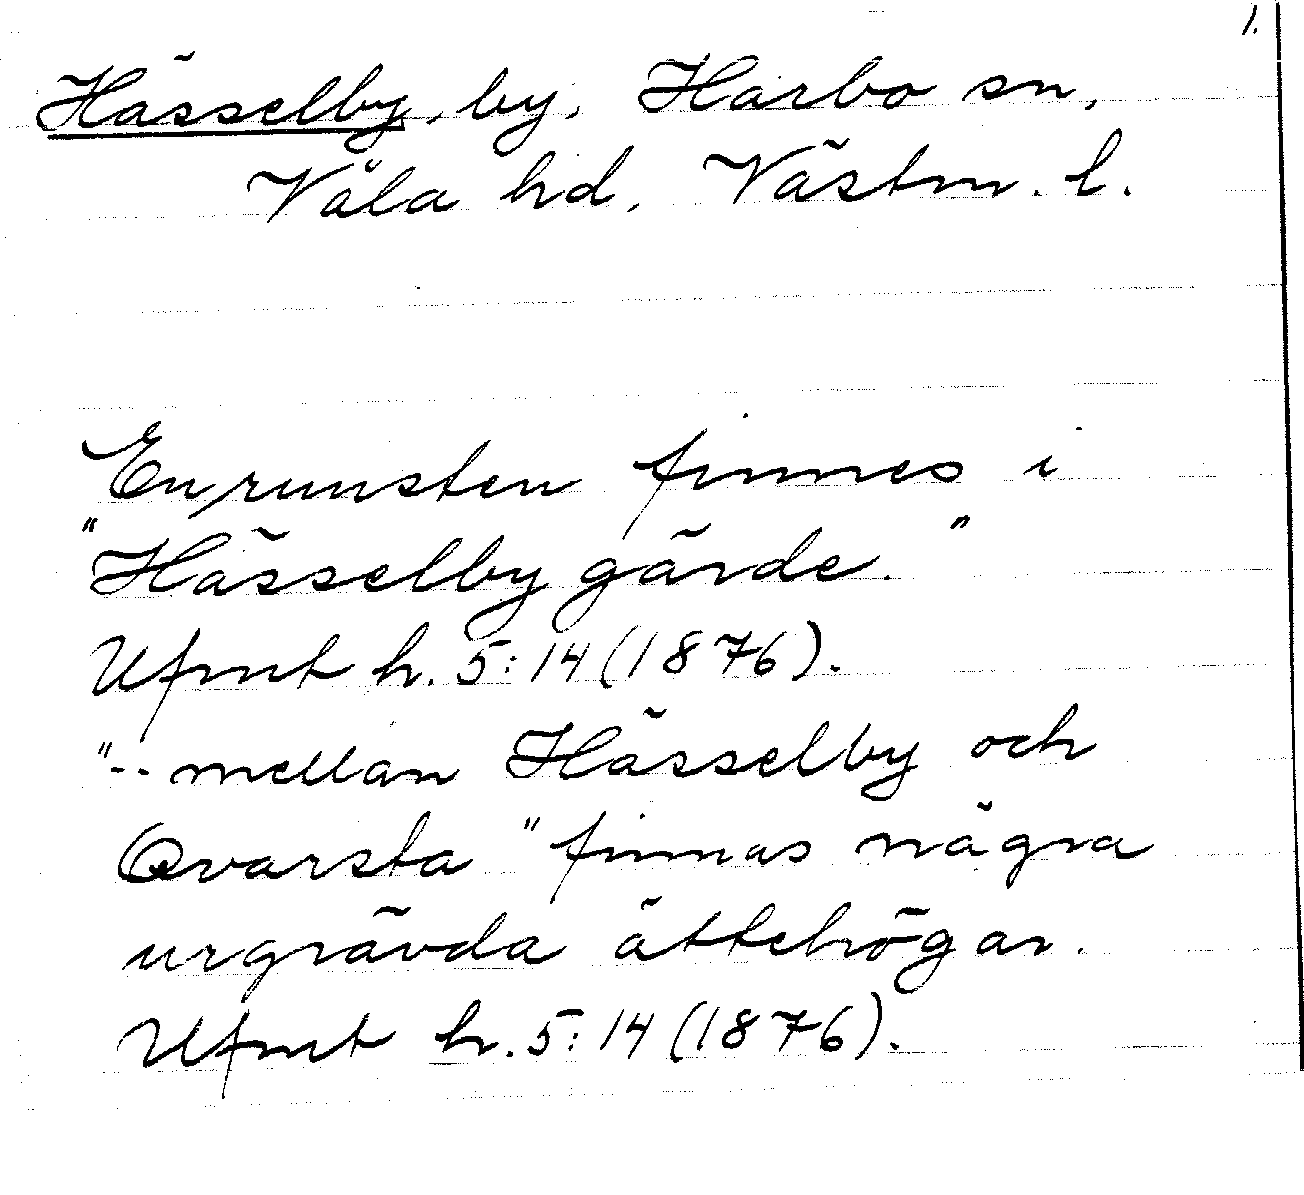 1.
Hässelby, by, Harbo sn,
Våla hd, Västm. l.
En runsten finnes i
"Hässelby gärde."
Ufmt h. 5:14 (1876).
"-- mellan Hässelby och
Qvarsta" finnas några
urgrävda ättehögar.
Ufmt h. 5:14 (1876).